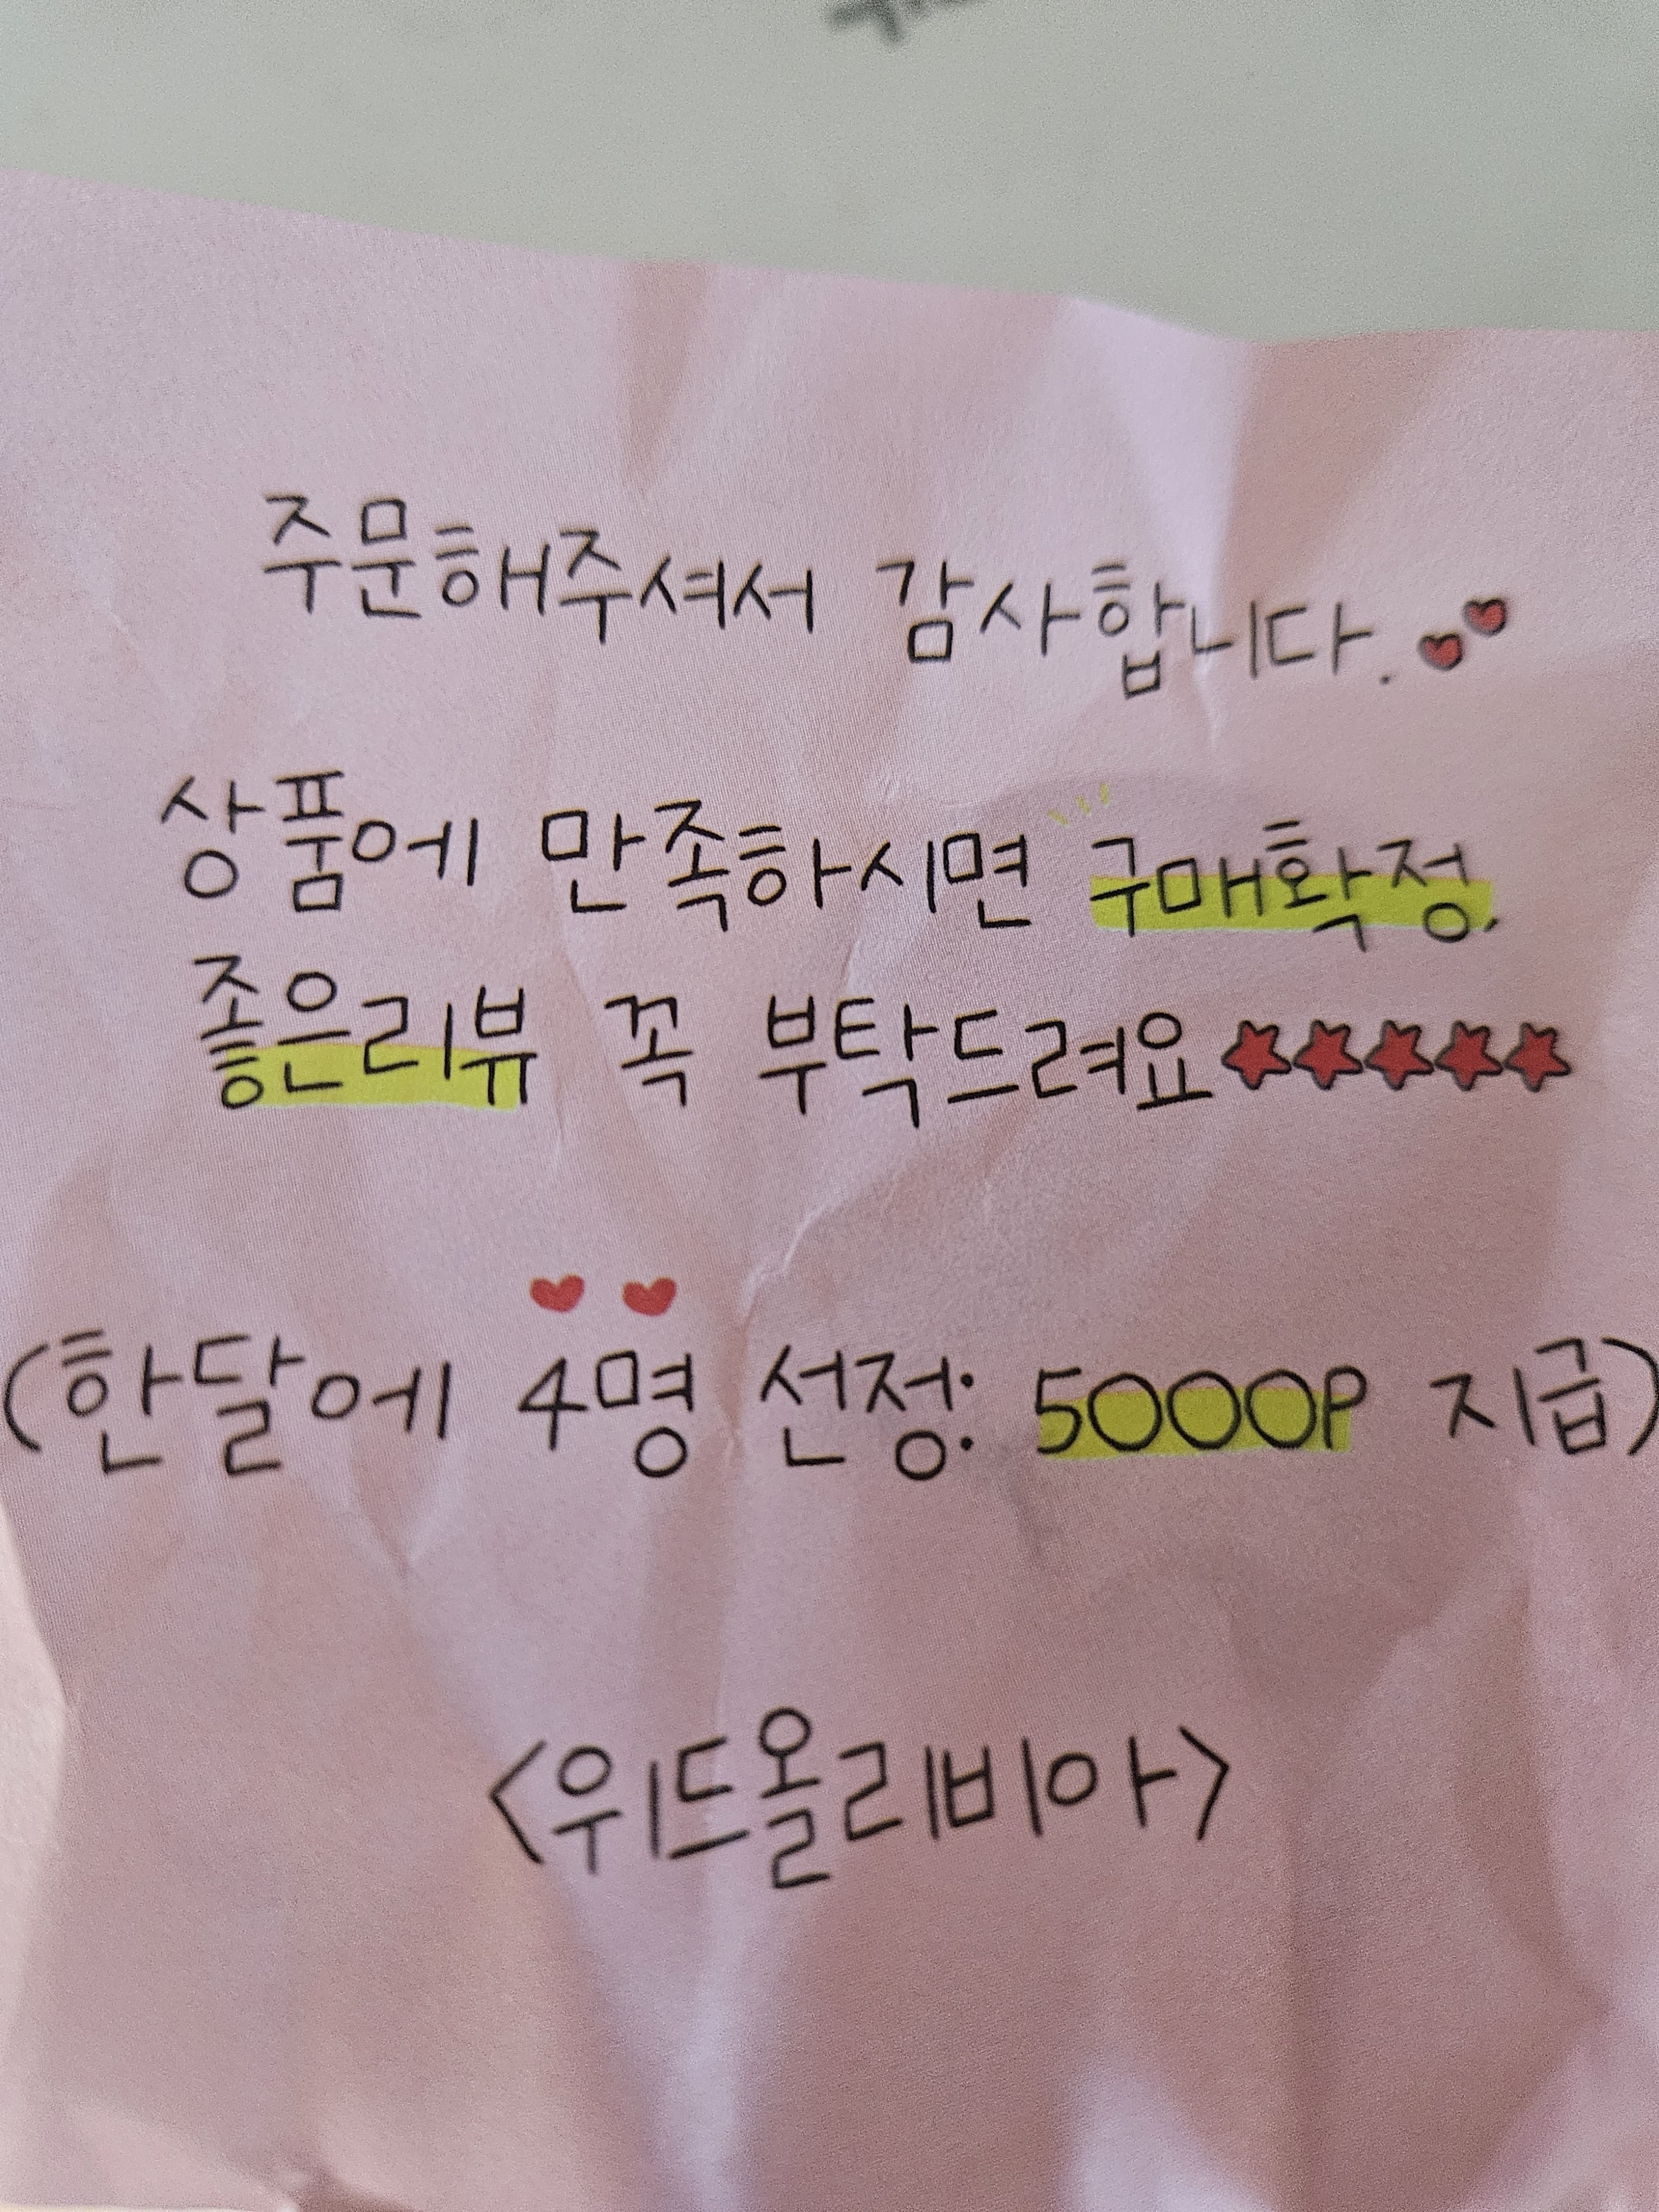 주문해주셔서 감사합니다.
상품에 만족하시면 구매확정,
좋은리뷰 꼭 부탁드려요★★★★★
(한달에 4명 선정: 5000P 지급)
<위드올리비아>